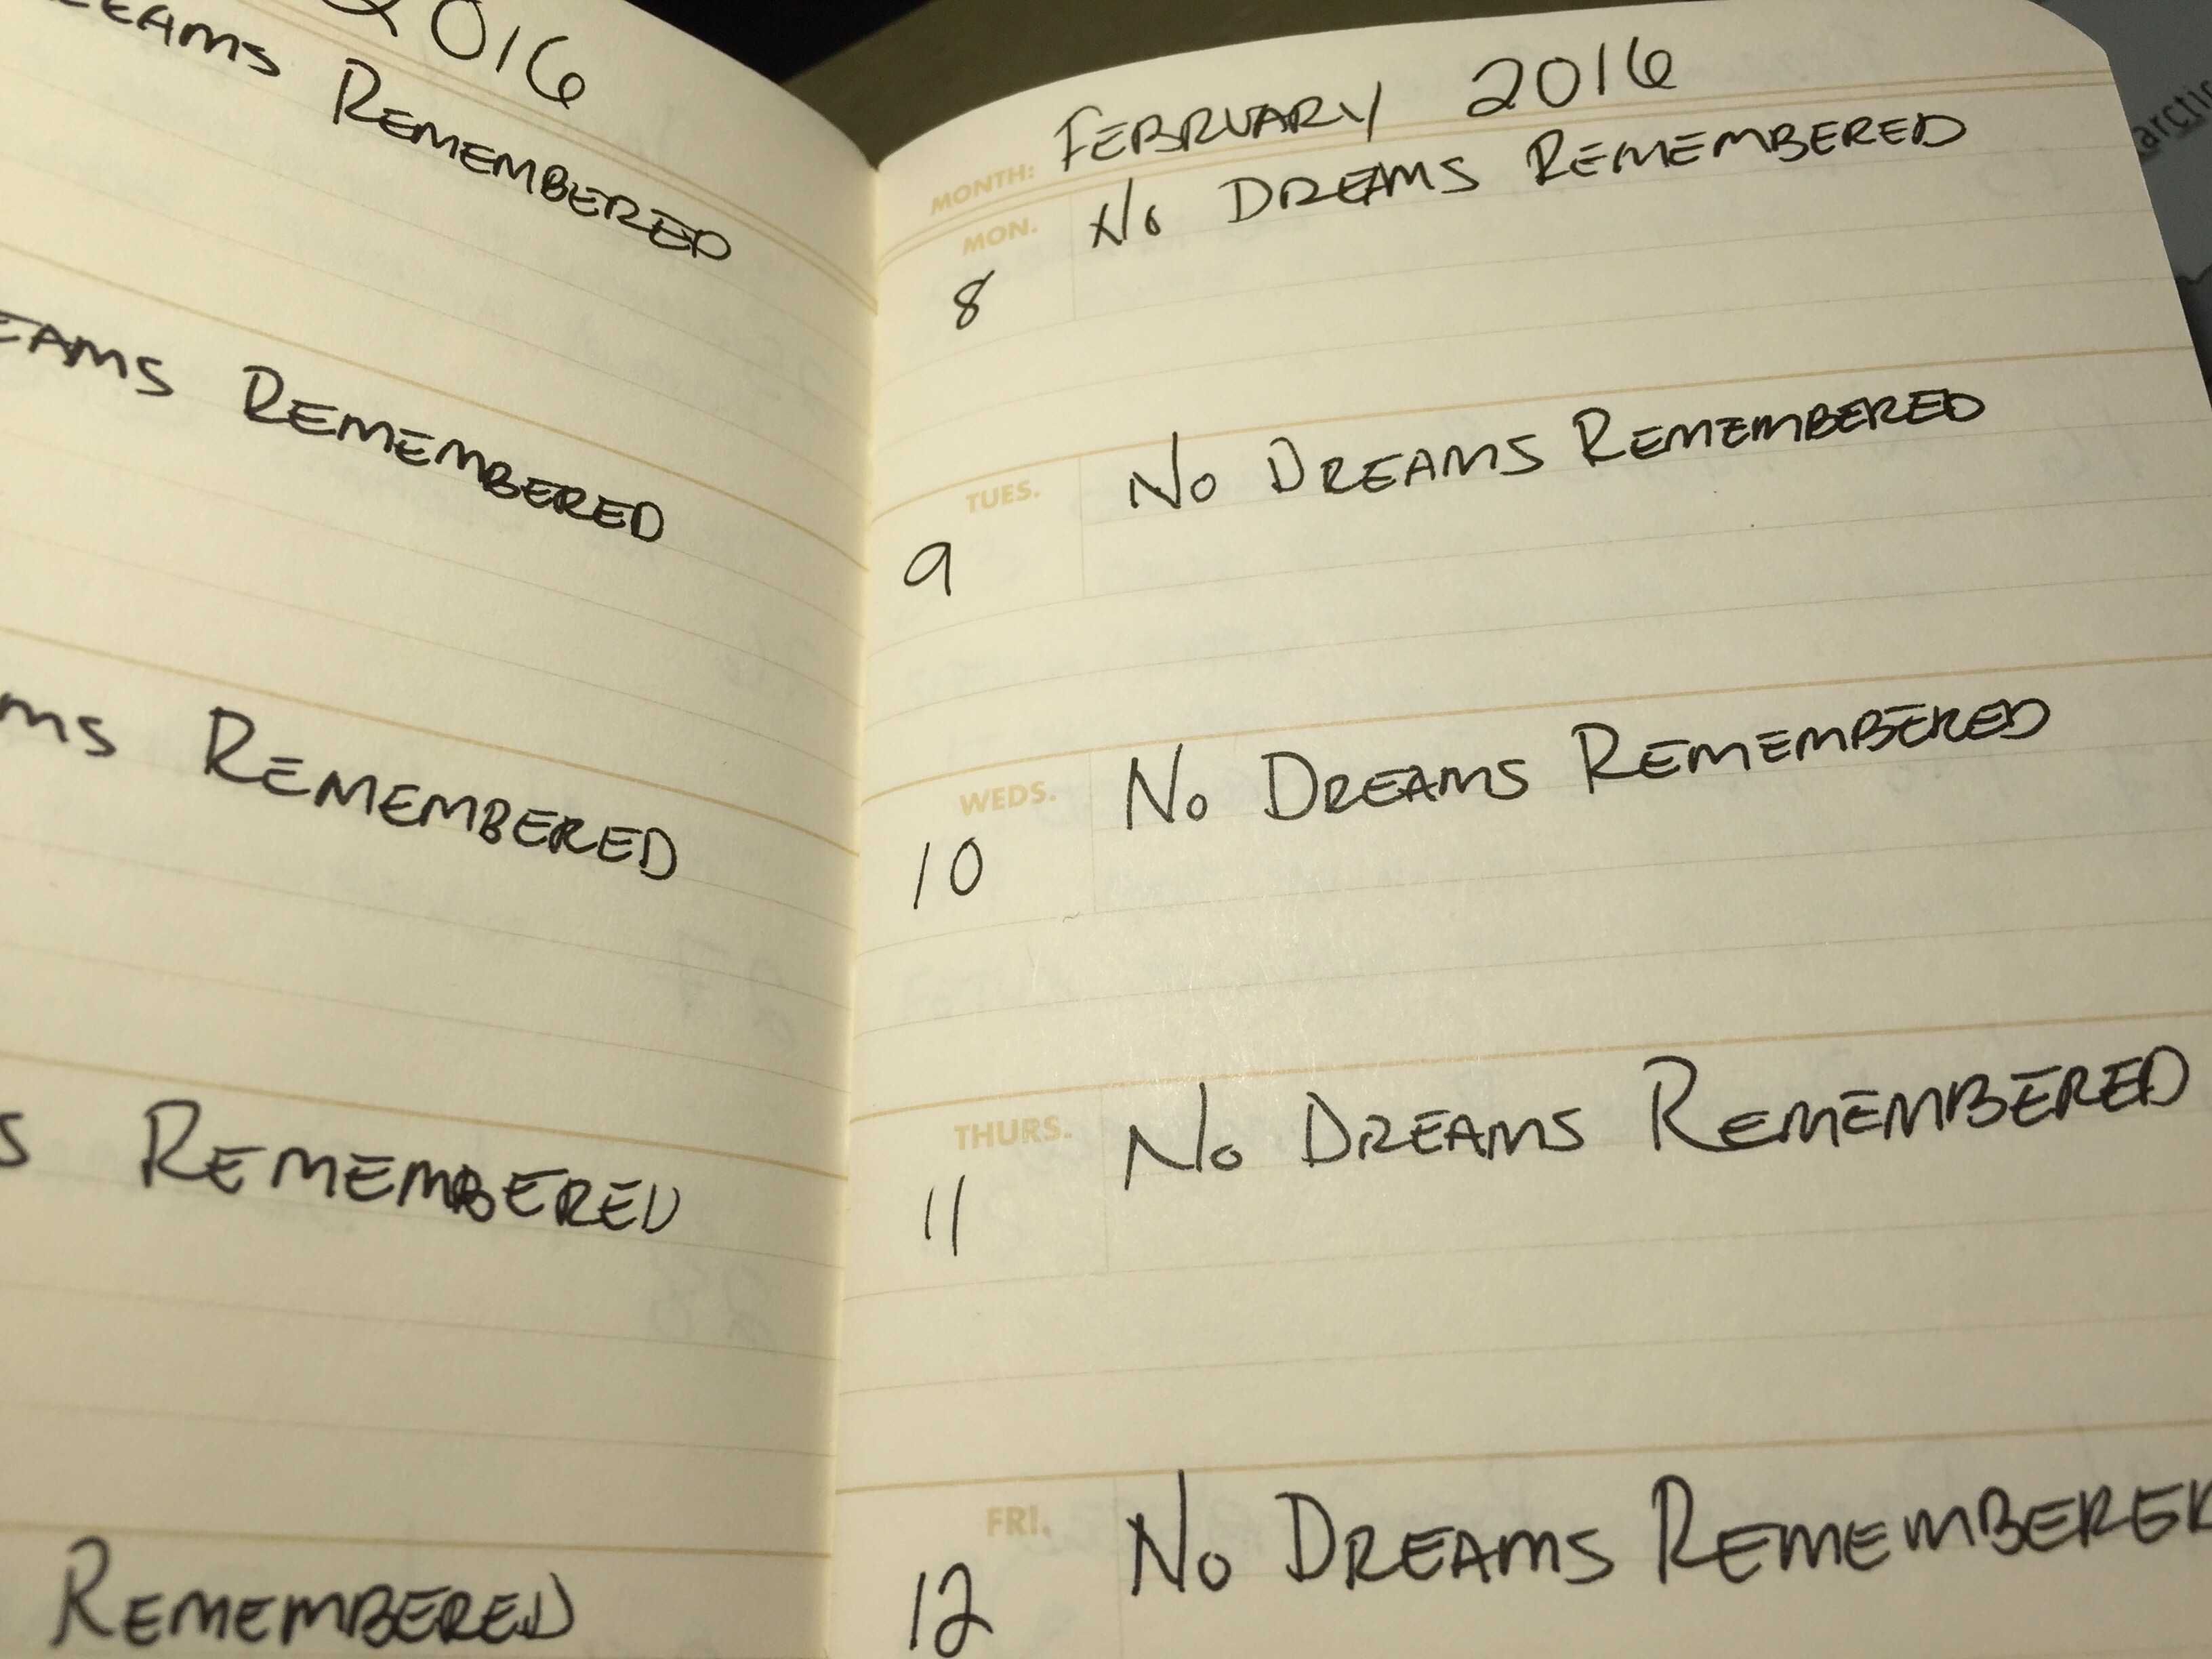 2016
REMEMBERED
REMEMBERED
REMEMBERED
REMEMBERED
REMEMBERED
MONTH: FEBRUARY 2016
MON. No DREAMS REMEMBERED
8
TUES. No DREAMS REMEMBERED
9
WEDS. No DREAMS REMEMBERED
10
THURS. No DREAMS REMEMBERED
11
FRI. No DREAMS REMEMBERED
12